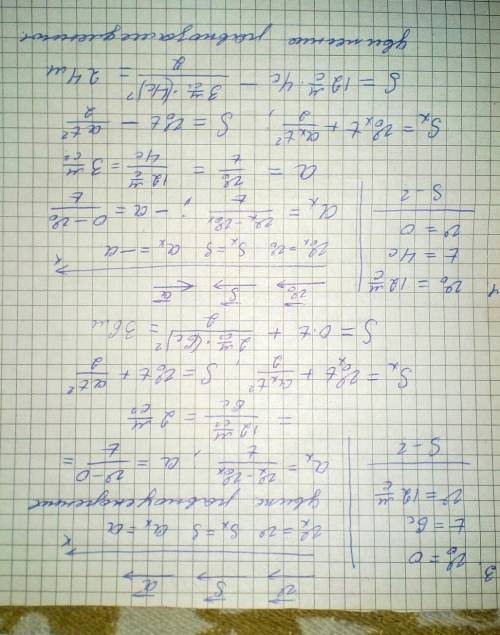 3
v₀ = 0
t = 6c
v = 12 м/с
S - ?
v⃗ S⃗ a⃗
x
vₓ = v Sₓ = S aₓ = a
движ. равноускоренное
aₓ = (vₓ - v₀ₓ)/t ; a = (v - 0)/t =
= (12 м/с²)/(6c) = 2 м/с²
Sₓ = v₀ₓt + aₓt²/2 ; S = v₀t + at²/2
S = 0·t + (2 м/с² · (6c)²)/2 = 36 м
4
v₀ = 12 м/с
t = 4c
v = 0
S - ?
v⃗₀ S⃗ a⃗
x
v₀ₓ = v₀ Sₓ = S aₓ = -a
aₓ = (vₓ - v₀ₓ)/t ; -a = (0 - v₀)/t
a = v₀/t = (12 м/с)/(4c) = 3 м/с²
Sₓ = v₀ₓt + aₓt²/2 ; S = v₀t - at²/2
S = 12 м/с · 4c - (3 м/с² · (4c)²)/2 = 24 м
движение равнозамедленное